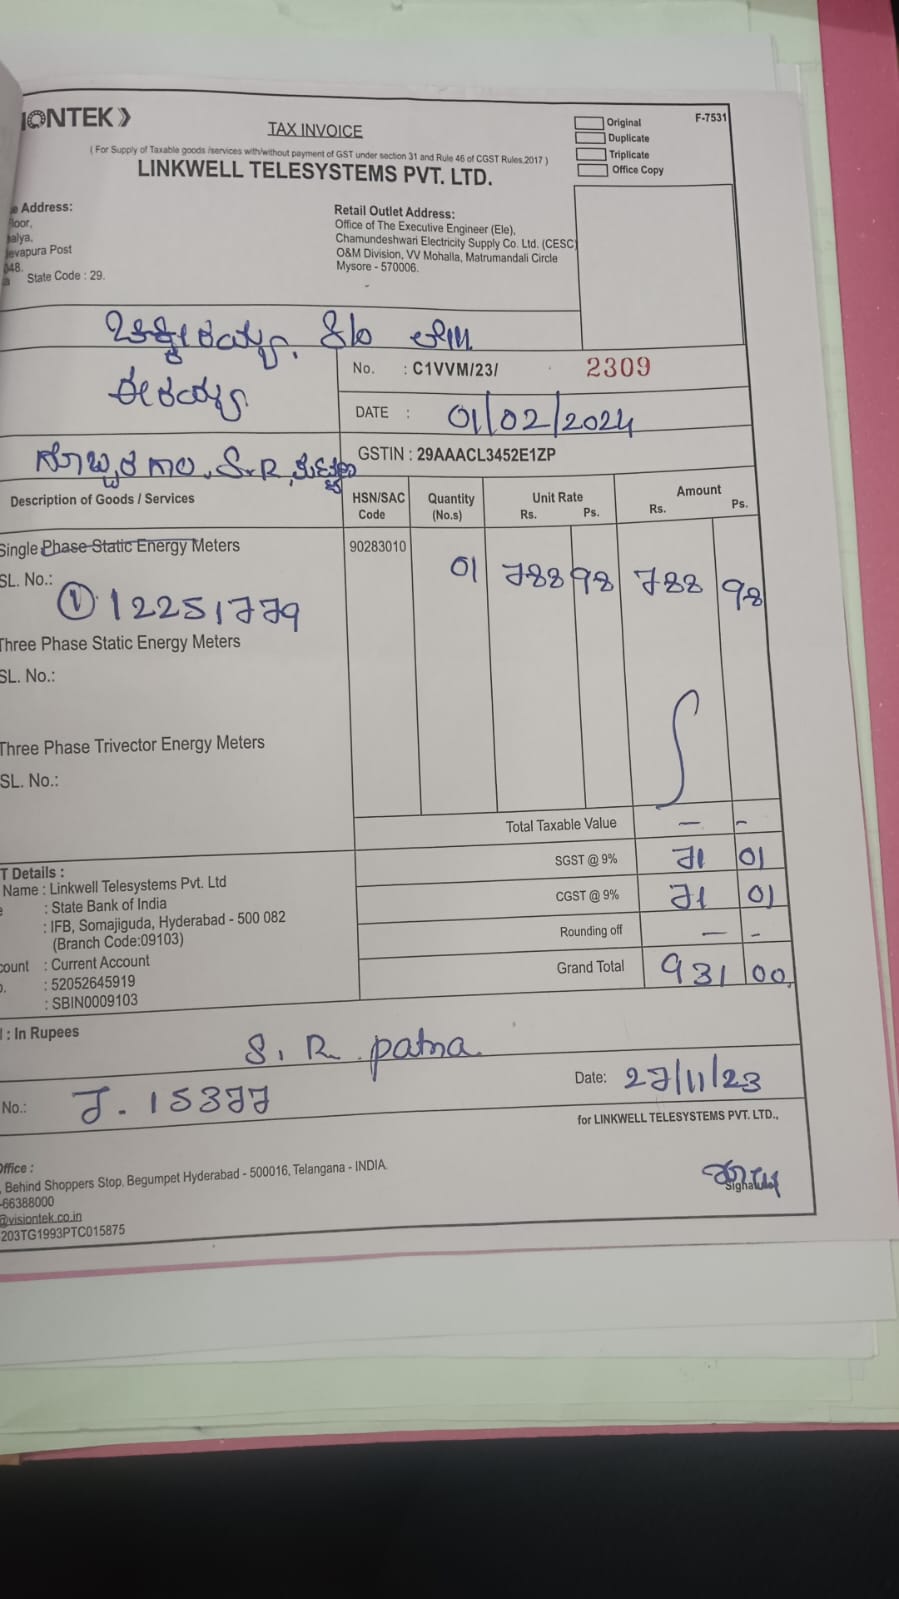 IONTEK
TAX INVOICE
Original
Duplicate
Triplicate
Office Copy
F-7531
( For Supply of Taxable goods /services with/without payment of GST under section 31 and Rule 46 of CGST Rules,2017 )
LINKWELL TELESYSTEMS PVT. LTD.
e Address:
loor,
alya,
evapura Post
048.
a State Code : 29.
Retail Outlet Address:
Office of The Executive Engineer (Ele),
Chamundeshwari Electricity Supply Co. Ltd. (CESC)
O&M Division, VV Mohalla, Matrumandali Circle
Mysore - 570006.
No. : C1VVM/23/ 2309
DATE : 01/02/2024
S.R.
GSTIN : 29AAACL3452E1ZP
Description of Goods / Services
HSN/SAC Code
Quantity (No.s)
Unit Rate Rs. Ps.
Amount Rs. Ps.
Single Phase Static Energy Meters 90283010 01 788 98 788 98
SL. No.:
① 12251779
Three Phase Static Energy Meters
SL. No.:
Three Phase Trivector Energy Meters
SL. No.:
Total Taxable Value — -
SGST @ 9% 71 01
CGST @ 9% 71 01
Rounding off — -
Grand Total 931 00
T Details :
Name : Linkwell Telesystems Pvt. Ltd
e : State Bank of India
: IFB, Somajiguda, Hyderabad - 500 082
(Branch Code:09103)
count : Current Account
o. : 52052645919
: SBIN0009103
: In Rupees
S. R. patna
No.: J. 15377
Date: 27/11/23
for LINKWELL TELESYSTEMS PVT. LTD.,
Office :
, Behind Shoppers Stop, Begumpet Hyderabad - 500016, Telangana - INDIA.
-66388000
@visiontek.co.in
203TG1993PTC015875
Signature